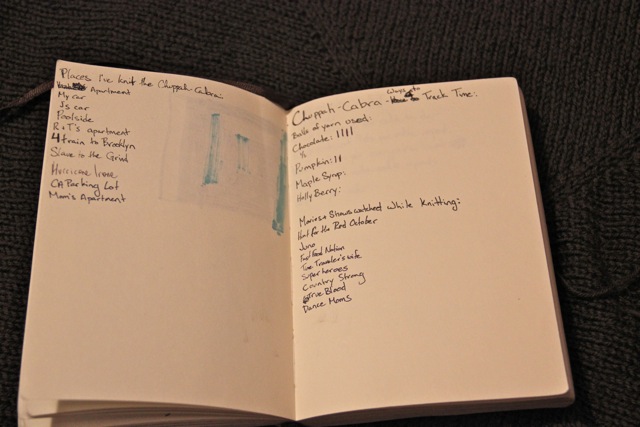 Places I've knit the Chuppah-Cabra:
Apartment
My car
J's car
Poolside
R+T's apartment
4 train to Brooklyn
Slave to the Grind
Hurricane Irene
CA Parking Lot
Mom's Apartment
Chuppah-Cabra - Ways to Track Time:
Balls of yarn used:
Chocolate: IIII
½
Pumpkin: II
Maple Syrup:
Holly Berry:
Movies + Shows watched while knitting:
Hunt for the Red October
Juno
Fast Food Nation
Time Traveler's wife
Superheroes
Country Strong
True Blood
Dance Moms